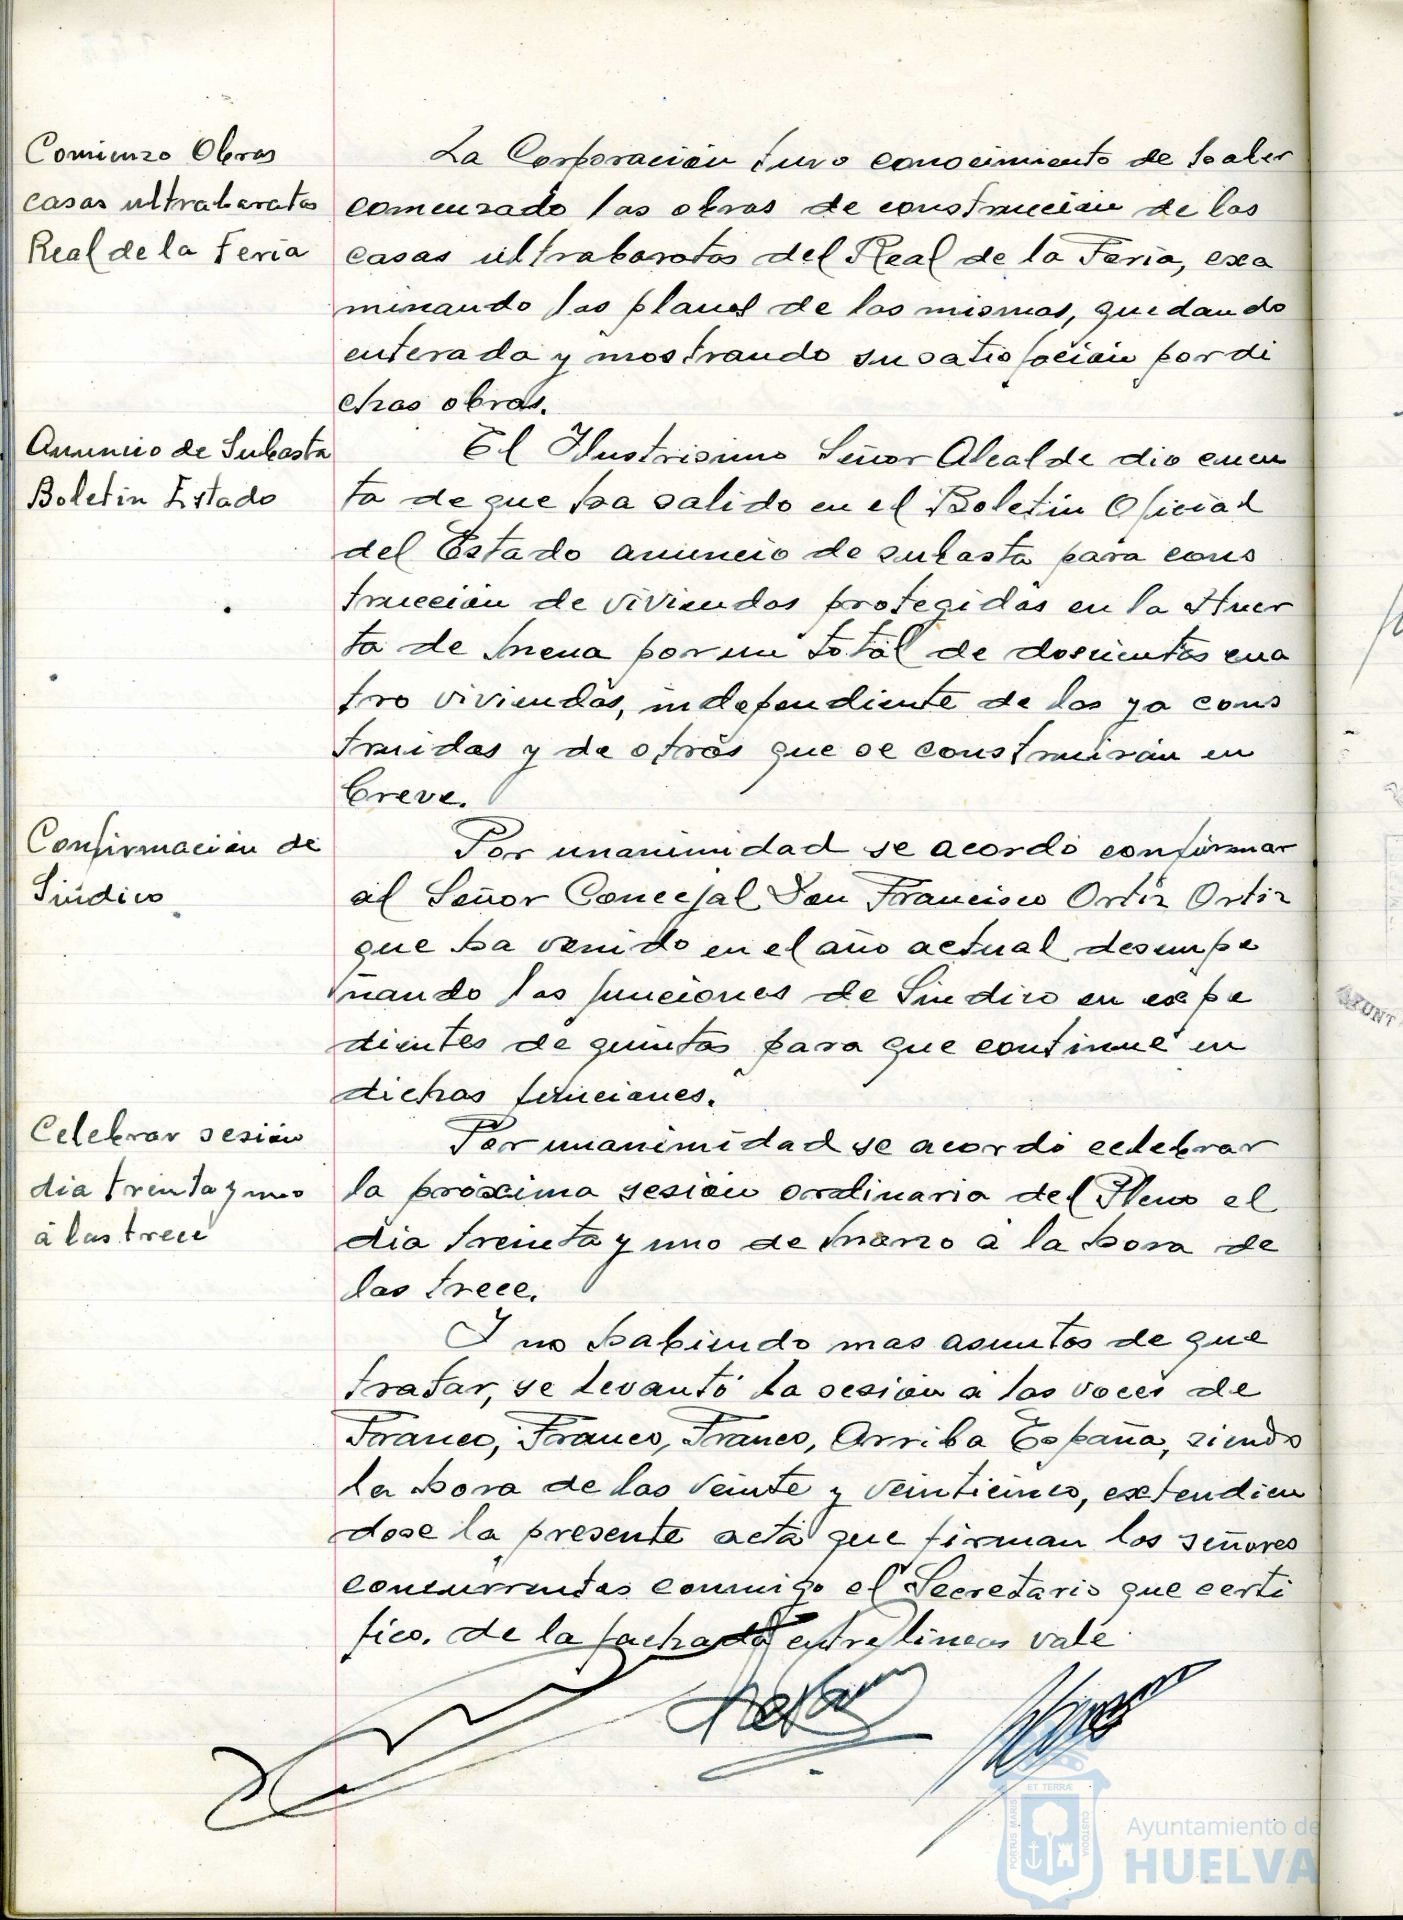 Comienzo Obras
casas ultrabaratas
Real de la Feria
La Corporación tuvo conocimiento de haber
comenzado las obras de construcción de las
casas ultrabaratas del Real de la Feria, exa
minando los planos de las mismas, quedando
enterada y mostrando su satisfación por di
chas obras.
Anuncio de Subasta
Boletin Estado
El Ilustrisimo Señor Alcalde dio cuen
ta de que ha salido en el Boletin Oficial
del Estado anuncio de subasta para cons
trucción de viviendas protegidas en la Huer
ta de Mena por un total de doscientas cua
tro viviendas, independiente de las ya cons
truidas y de otras que se construirán en
breve.
Confirmación de
Sindico
Por unanimidad se acordó confirmar
al Señor Concejal Don Francisco Ortiz Ortiz
que ha venido en el año actual desempe
ñando las funciones de Sindico en expe
dientes de quintas para que continue en
dichas funciones.
Celebrar sesión
dia treinta y uno
á las trece
Por unanimidad se acordó celebrar
la próxima sesión ordinaria del Pleno el
dia treinta y uno de Marzo á la hora de
las trece.
Y no habiendo mas asuntos de que
tratar, se levantó la sesión á las voces de
Franco, Franco, Franco, Arriba España, siendo
la hora de las veinte y veinticinco, extendien
dose la presente acta que firman los señores
concurrentes conmigo el Secretario que certi
fico. de la fachada entrelineas vale
ET TERRÆ
PORTUS MARIS
CUSTODIA
Ayuntamiento de
HUELVA
AYUNT